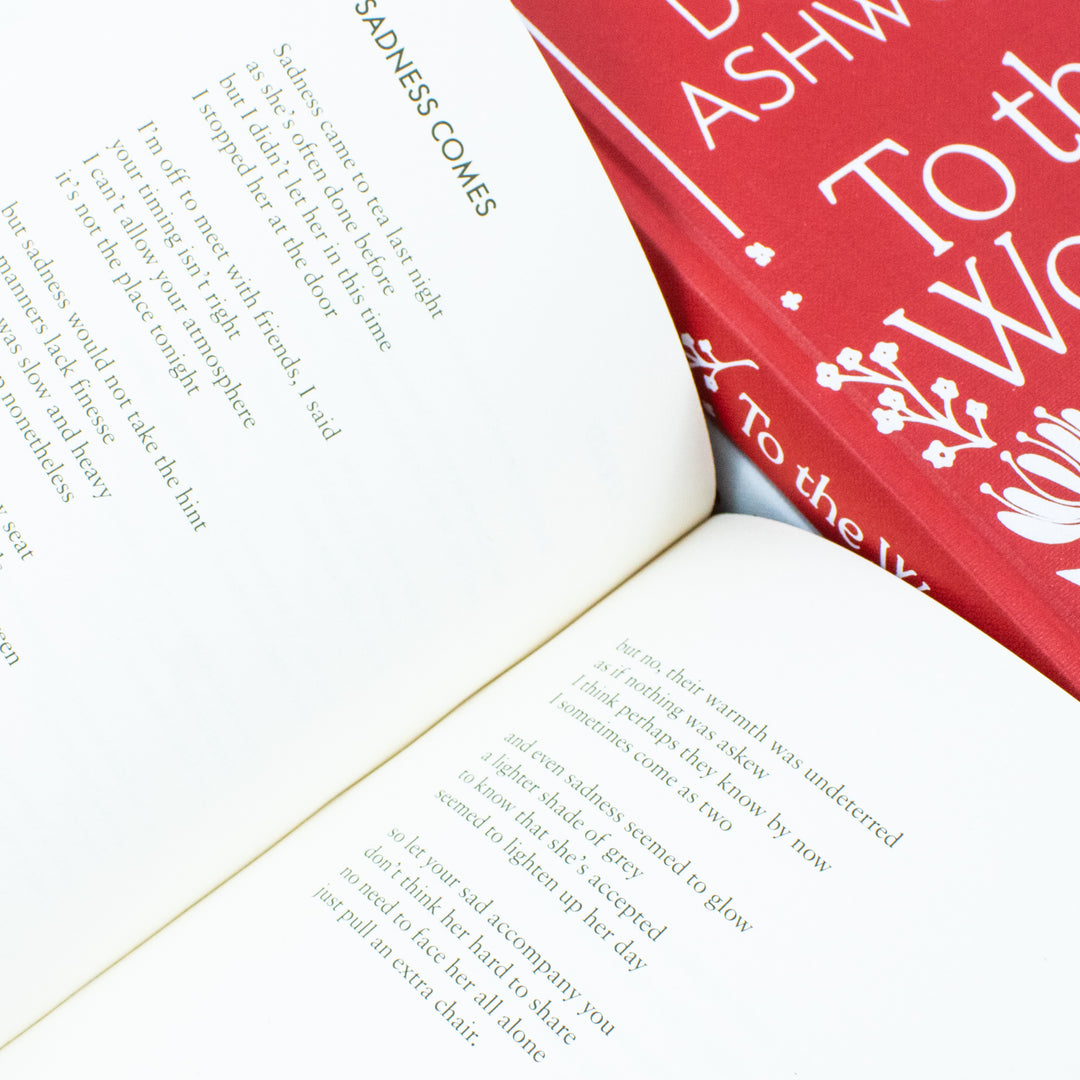 SADNESS COMES
Sadness came to tea last night
as she's often done before
but I didn't let her in this time
I stopped her at the door
I'm off to meet with friends, I said
your timing isn't right
I can't allow your atmosphere
it's not the place tonight
but sadness would not take the hint
manners lack finesse
was slow and heavy
nonetheless
seat
but no, their warmth was undeterred
as if nothing was askew
I think perhaps they know by now
I sometimes come as two
and even sadness seemed to glow
a lighter shade of grey
to know that she's accepted
seemed to lighten up her day
so let your sad accompany you
don't think her hard to share
no need to face her all alone
just pull an extra chair.
To the
ASHW
To th
Wo